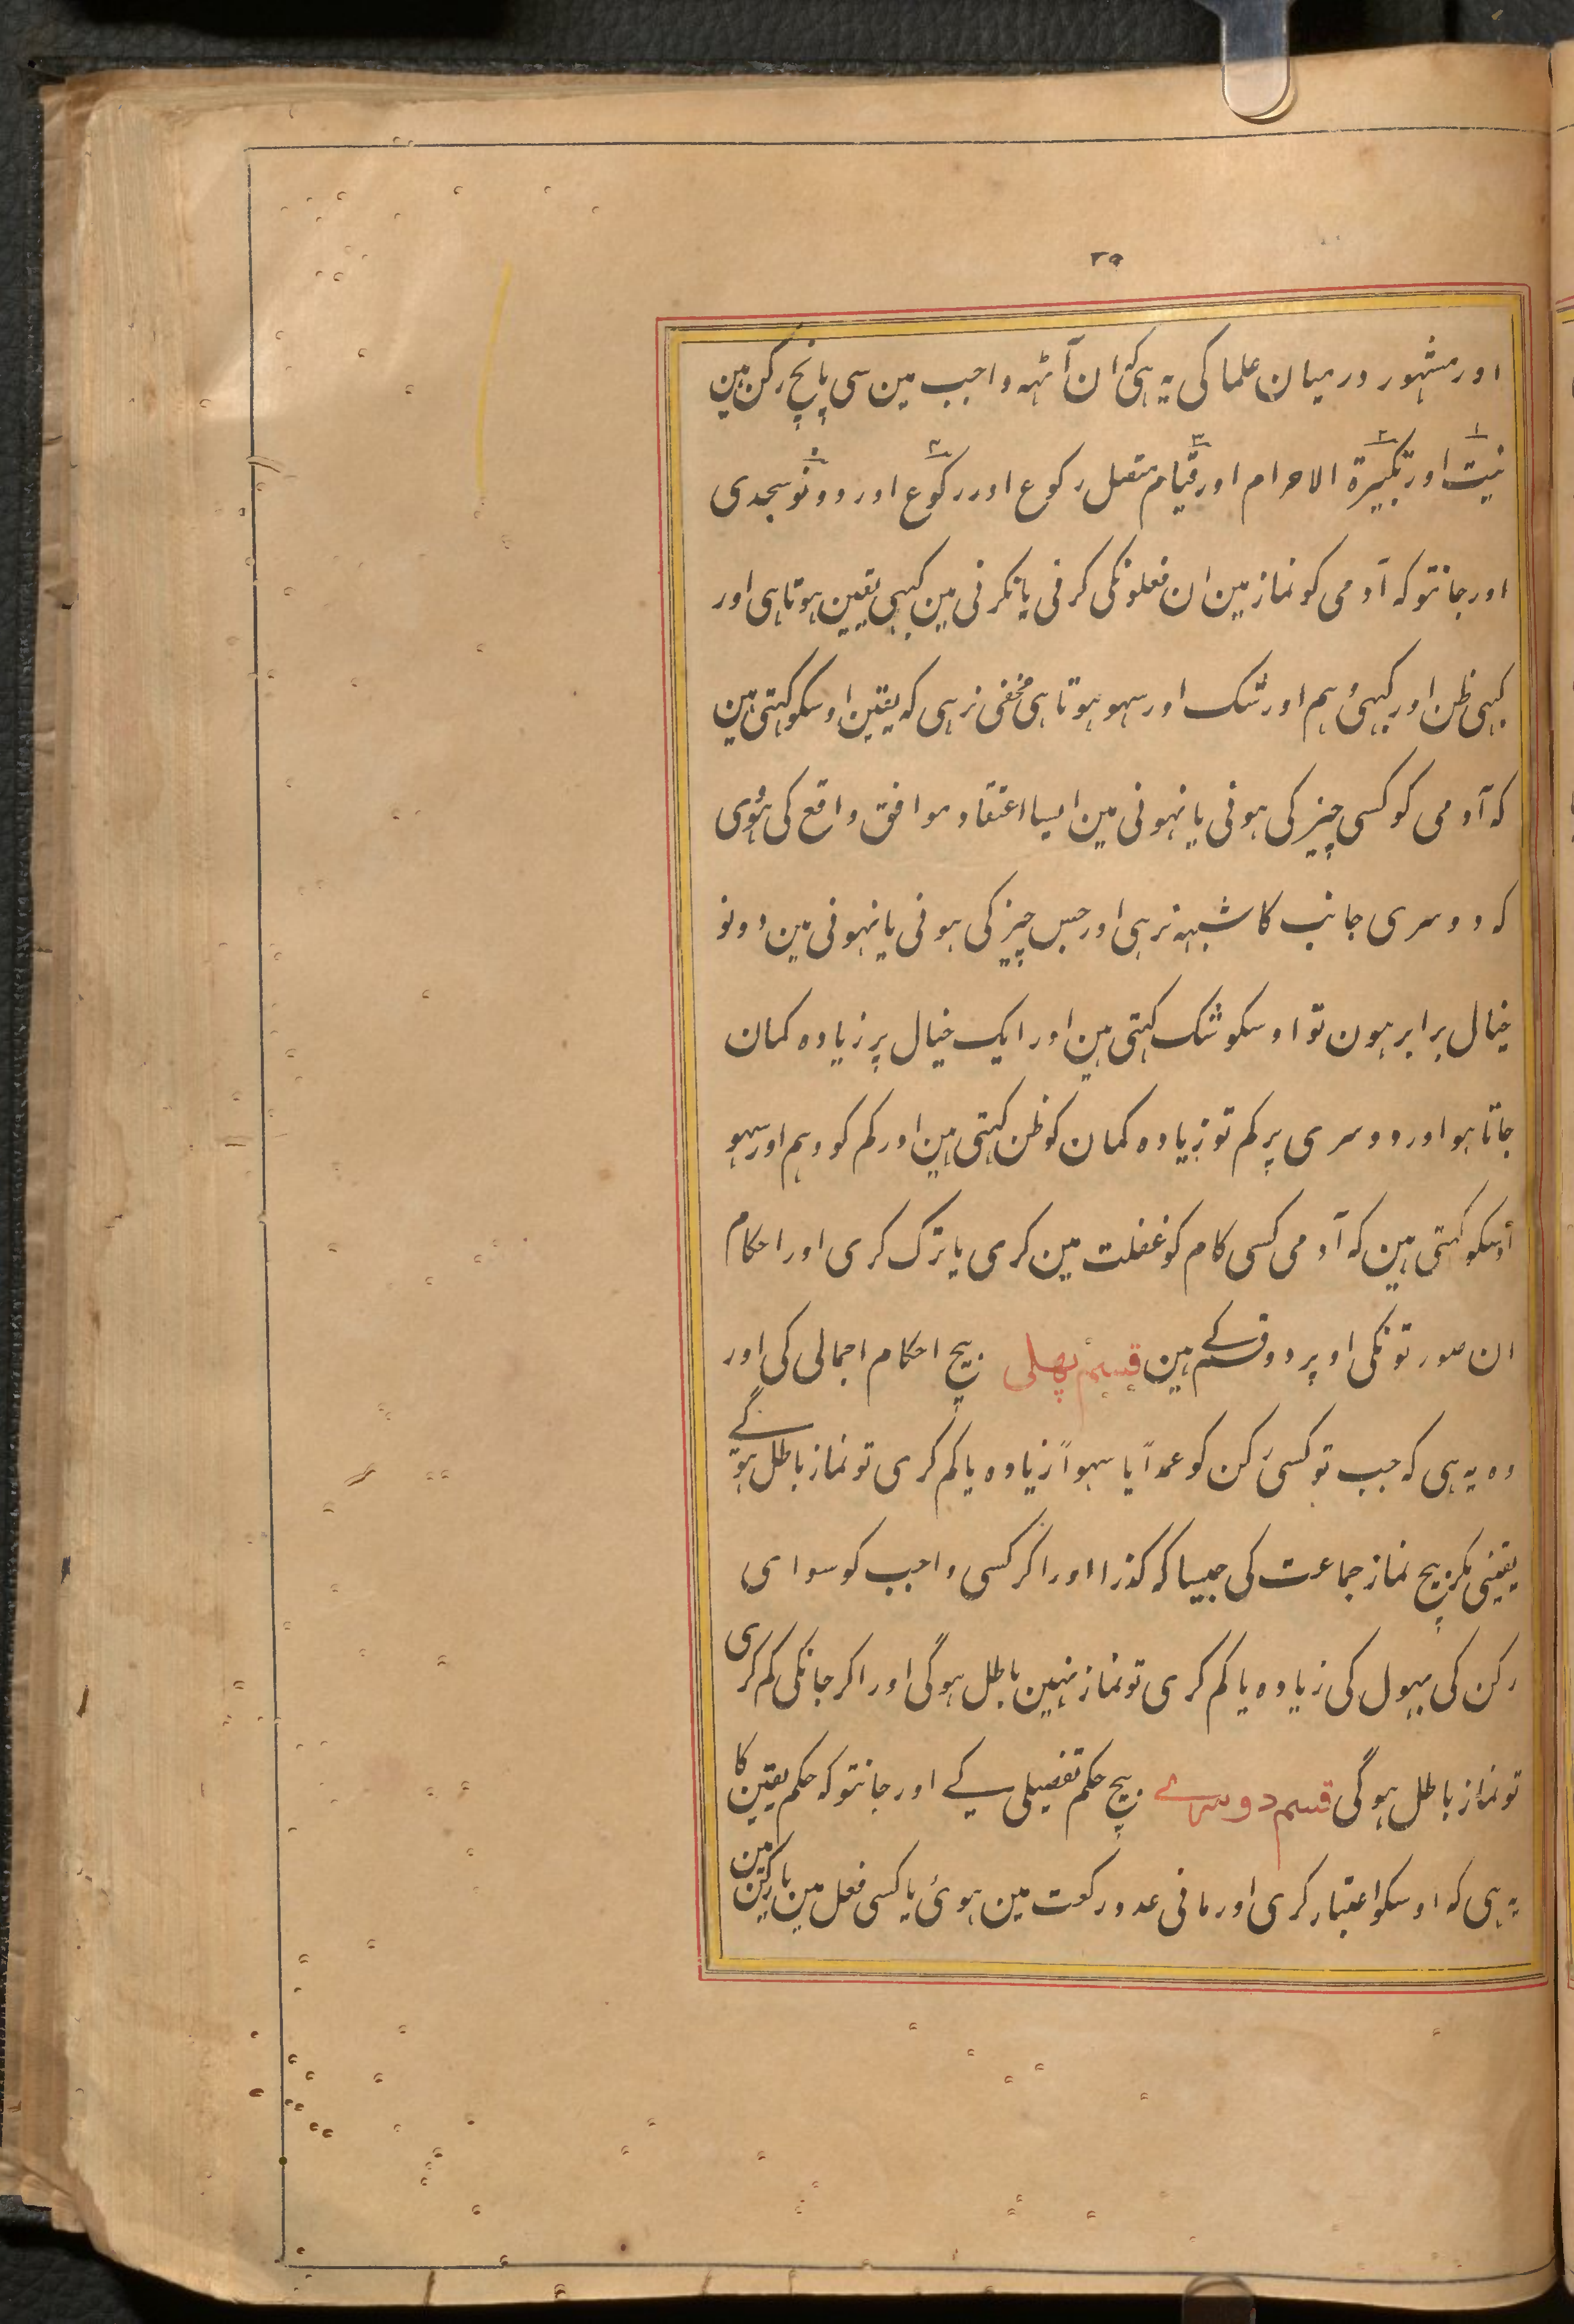 ۳۵
اور مشہور درمیان علما کی یہ ہی کہ ان آٹہہ واجب مین سی پانچ رکن ہین
نیت ۱ اور تکبیرة ۲ الاحرام اور قیام ۳ متصل رکوع اور رکوع ۴ اور دونو ۵ سجدی
اور جانتو کہ آدمی کو نماز مین ان فعلونکی کرنی یا نکرنی مین کبہی یقین ہوتا ہی اور
کبہی ظن اور کبہی وہم اور شک اور سہو ہوتا ہی مخفی نرہی کہ یقین اوسکو کہتی ہین
کہ آدمی کو کسی چیز کی ہونی یا نہونی مین ایسا اعتقاد موافق واقع کی ہووی
کہ دوسری جانب کا شبہہ نرہی اور جس چیز کی ہونی یا نہونی مین دونو
خیال برابر ہون تو اوسکو شک کہتی ہین اور ایک خیال پر زیادہ کمان
جاتا ہو اور دوسری پر کم تو زیادہ کمان کو ظن کہتی ہین اور کم کو وہم اور سہو
اُوسکو کہتی ہین کہ آدمی کسی کام کو غفلت مین کری یا ترک کری اور احکام
ان صورتونکی اوپر دو قسم کے ہین قسم پھلی بیچ احکام اجمالی کی اور
وہ یہ ہی کہ جب تو کسی رکن کو عمداً یا سہواً زیادہ یا کم کری تو نماز باطل ہوگے
یقینی مکر بیچ نماز جماعت کی جیسا کہ کذرا اور اکر کسی واجب کو سوای
رکن کی بہول کی زیادہ یا کم کری تو نماز نہین باطل ہوگی اور اکر جانکی کم کری
تو نماز باطل ہوگی قسم دوسرے بیچ حکم تفصیلی کے اور جانتو کہ حکم یقین کا
یہ ہی کہ اوسکو اعتبار کری اور مانی عدد رکعت مین ہوئ یا کسی فعل مین یا رکن مین